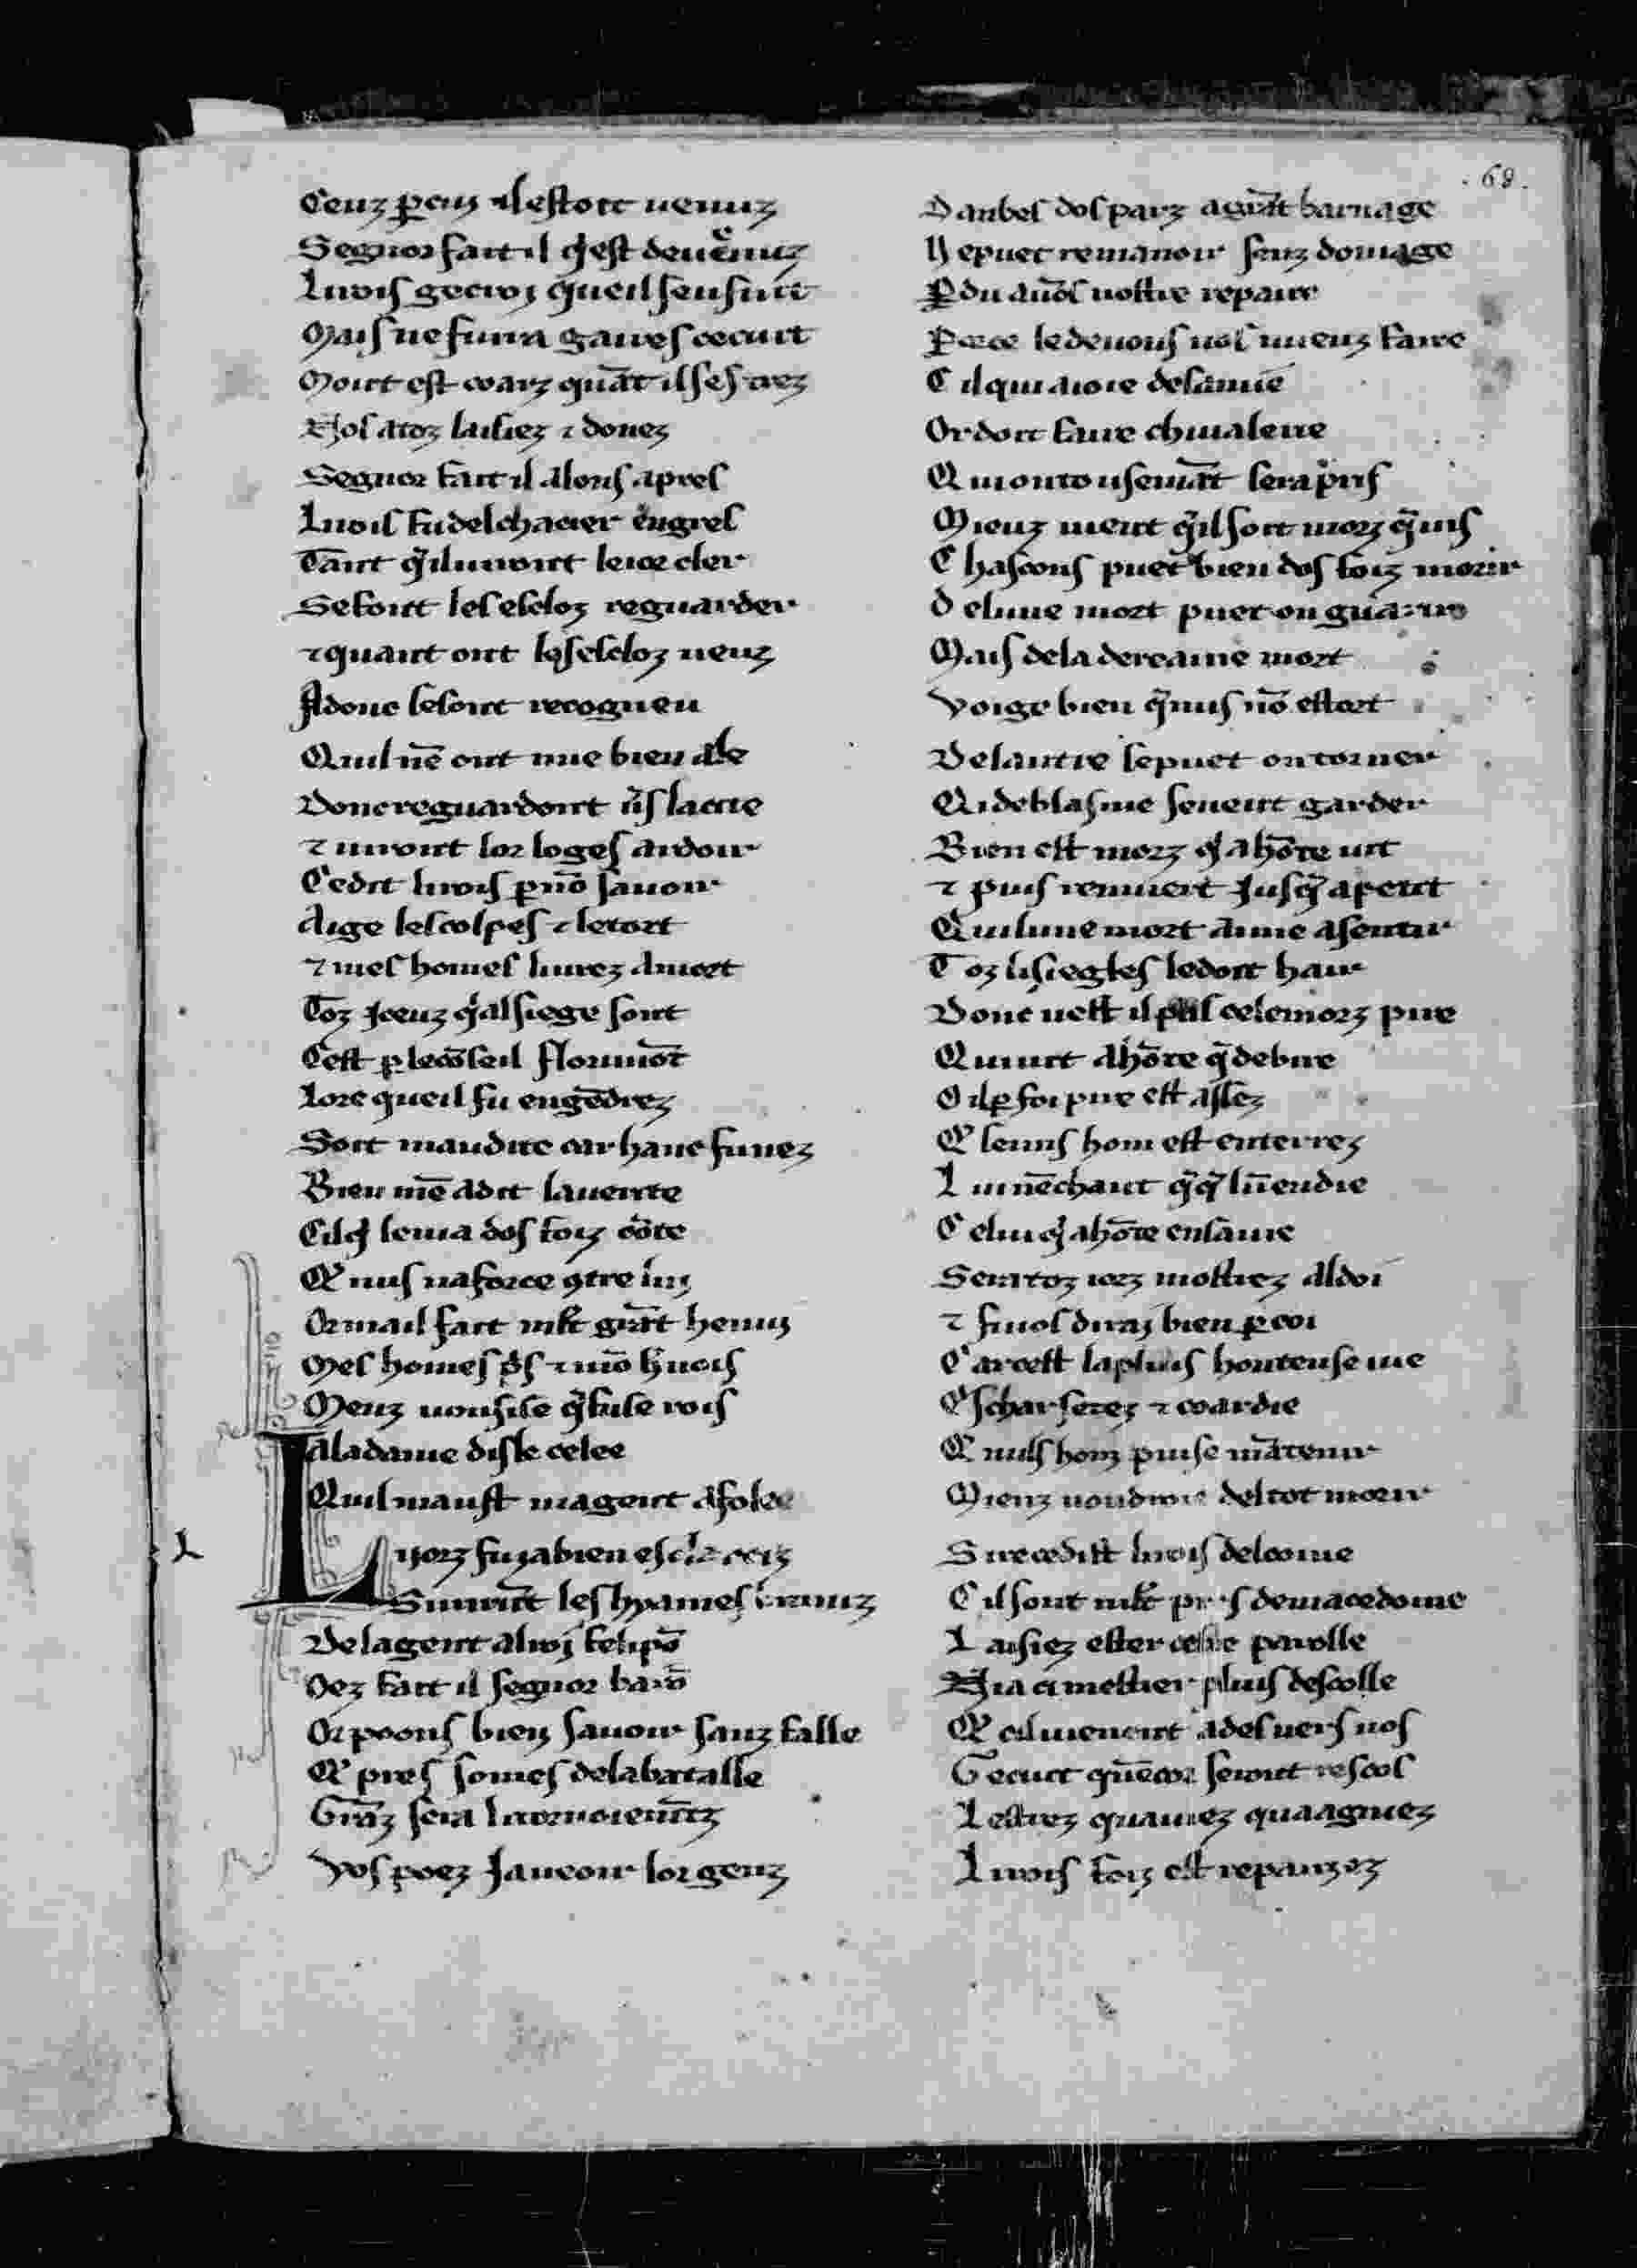 .69.
Ceuz ꝑ cuy il estoit uenuz
Segnor fait il q̍ est deuenuz
Li rois ge croi queil sen fuit
Mais ne fuira gaires ce cuit
Molt est coarz quāt il ses trez
Nos a toz laisiez ⁊ donez
Segnor fait il alons apres
Li rois fu del chacier engres
Tant q̄ il uiront le ior cler
Se font les escloz reguarder
⁊ quant ont les escloz ueuz
Adonc se sont recogneu
Quil nē ont mie bien ale
Donc reguardont ūs la cite
⁊ uiront lor loges ardoir
Ce dit li rois ꝑ nō sauoir
Ai ge les colpes ⁊ le tort
⁊ mes homes liurez a mort
Toz iceuz q̍ al siege sont
Cest ꝑ le cōseil florimōt
Lore queil fu engēdrez
Soit maudite car haue fu nez
Bien mē a dit la uerite
Cil q̍ leuia dos foiz cōte
Q̍ nus na force 9tre lui
Or mail fait mlt grāt henui
Mes homes ꝑs ⁊ mō hernois
Menz uousise q̄ fuse rois
A la dame disle celee
Quil maust ma gent afolee
Li iorz fu ia bien esclarciz
Si uirēt les hyames bruniz
De la gent al roi felipō
Oez fait il segnor barō
Or poons bien sauoir sanz falle
Q̍ pres somes de la batalle
Grāz sera li tornoiemētz
Vos poez sauoir lor genz
D anbes dos parz a grāt barnage
N e puet remanoir senz domage
ꝑ du auōs nostre repaire
ꝑ oce le deuons nos mieuz faire
C il qui a ioie de sa mie
Or doit faire chiualerie
Q̍ montousemāt sera pris
Mieuz uient q̄ il soit morz q̄ uis
C hascons puet bien dos foiz morir
D elune mort puet on guarir
Mais de la dereaine mort
Voi ge bien q̄ nus nō estort
De lautre se puet on torner
Q̍ i de blasme se ueut garder
Bien est morz q̍ a hōte uit
⁊ puis reuiuert jusq̄ a petit
Qui lune mort aime a sentir
T oz li siegles le doit hair
Donc nest il plus celemorz pire
Q̍ uiuit a hōte q̄ de bire
O il ꝑ foi pire est assez
Q̍ lenuis hom est enterrez
L iu nē chaut q̄ q̄ lū en die
C elui q̍ a hōte en sa uie
Sera toz iorz mostrez al doi
⁊ si uos dirai bien ꝑ coi
C ar cest la pluis honteuse uie
Eschar setez ⁊ coardie
Q̍ nuls hom puise māteuir
Mieuz uoudroie del tot morir
S ire ce dist li rois de loome
C il sont mlt pres de macedoine
L aisiez ester ceste parolle
N i a ci mestier pluis descolle
Q̍ cil uienent ades uers nos
G e cuit quēcor seront rescos
L estrez quauiez guaagniez
L i rois foiz est repairiez